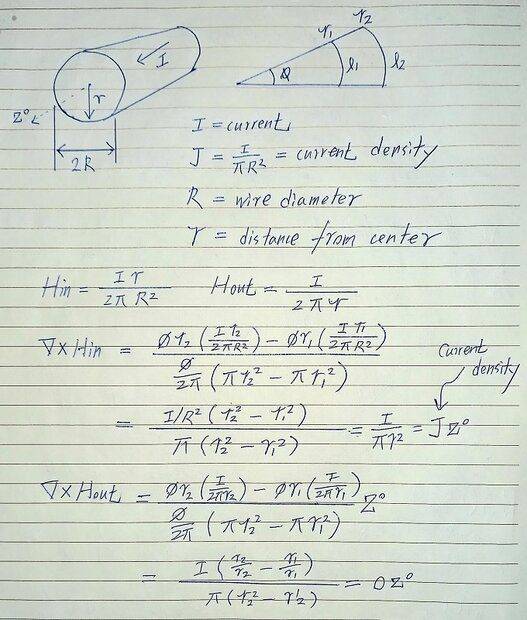 I
r
Z°
2R
r₁ r₂
Q l₁ l₂
I = current
J = I/πR² = current density
R = wire diameter
r = distance from center
Hin = I r/2πR² Hout = I/2πr
∇×Hin = (Ør₂(I r₂/2πR²) − Ør₁(I r₁/2πR²))/(Ø/2π (πr₂² − πr₁²))
current density
= (I/R² (r₂² − r₁²))/(π(r₂² − r₁²)) = I/πr² = J Z°
∇×Hout = (Ør₂(I/2πr₂) − Ør₁(I/2πr₁))/(Ø/2π (πr₂² − πr₁²)) Z°
= (I(r₂/r₂ − r₁/r₁))/(π(r₂² − r₁²)) = 0Z°